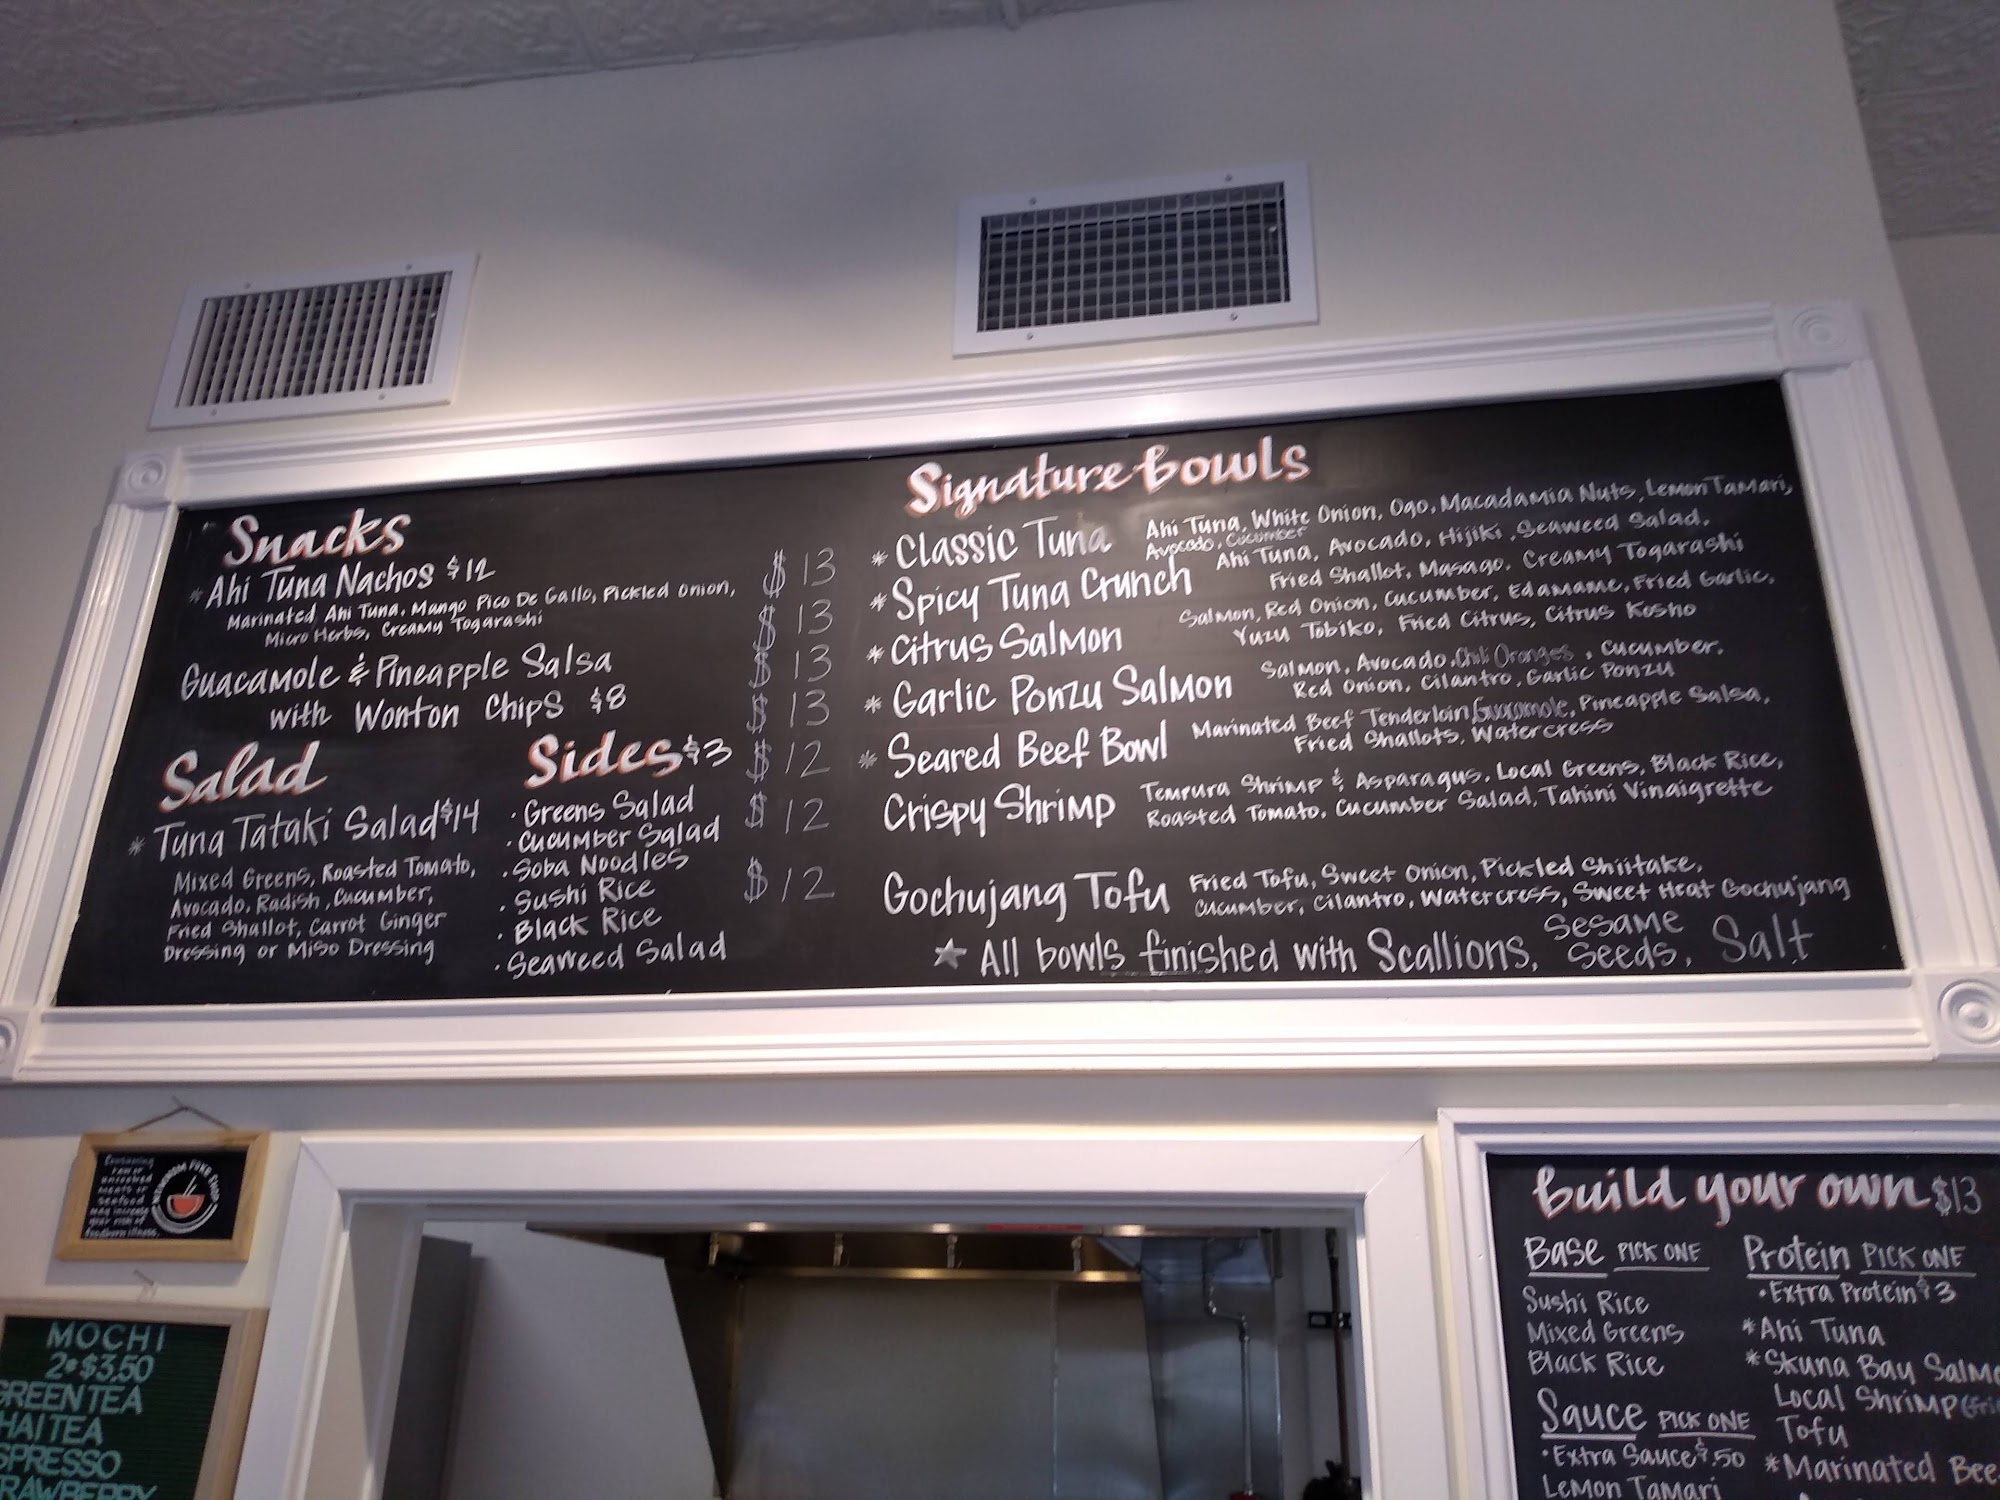 Snacks
* Ahi Tuna Nachos $12
Marinated Ahi Tuna, Mango Pico De Gallo, Pickled Onion,
Micro Herbs, Creamy Togarashi
Guacamole & Pineapple Salsa
with Wonton Chips $8
Salad
* Tuna Tataki Salad $14
Mixed Greens, Roasted Tomato,
Avocado, Radish, Cucumber,
Fried Shallot, Carrot Ginger
Dressing or Miso Dressing
Sides $3
· Greens Salad
· Cucumber Salad
· Soba Noodles
· Sushi Rice
· Black Rice
· Seaweed Salad
Signature Bowls
$13 * Classic Tuna Ahi Tuna, White Onion, Ogo, Macadamia Nuts, Lemon Tamari,
Avocado, Cucumber
$13 * Spicy Tuna Crunch Ahi Tuna, Avocado, Hijiki, Seaweed Salad,
Fried Shallot, Masago, Creamy Togarashi
$13 * Citrus Salmon Salmon, Red Onion, Cucumber, Edamame, Fried Garlic,
Yuzu Tobiko, Fried Citrus, Citrus Kosho
$13 * Garlic Ponzu Salmon Salmon, Avocado, Chili Oranges, Cucumber,
Red Onion, Cilantro, Garlic Ponzu
$12 * Seared Beef Bowl Marinated Beef Tenderloin, Guacamole, Pineapple Salsa,
Fried Shallots, Watercress
$12 Crispy Shrimp Tempura Shrimp & Asparagus, Local Greens, Black Rice,
Roasted Tomato, Cucumber Salad, Tahini Vinaigrette
$12 Gochujang Tofu Fried Tofu, Sweet Onion, Pickled Shiitake,
Cucumber, Cilantro, Watercress, Sweet Heat Gochujang
★ All bowls finished with Scallions, Sesame Seeds, Salt
Consuming
raw or
undercooked
meats or
seafood
may increase
your risk of
foodborn illness.
POKE SHOP
MOCHI
2 $3.50
GREEN TEA
HAI TEA
SPRESSO
RAWBERRY
Build your own $13
Base PICK ONE
Sushi Rice
Mixed Greens
Black Rice
Sauce PICK ONE
· Extra Sauce $.50
Lemon Tamari
Protein PICK ONE
· Extra Protein $3
* Ahi Tuna
* Skuna Bay Salmo
Local Shrimp (Fri
Tofu
* Marinated Bee